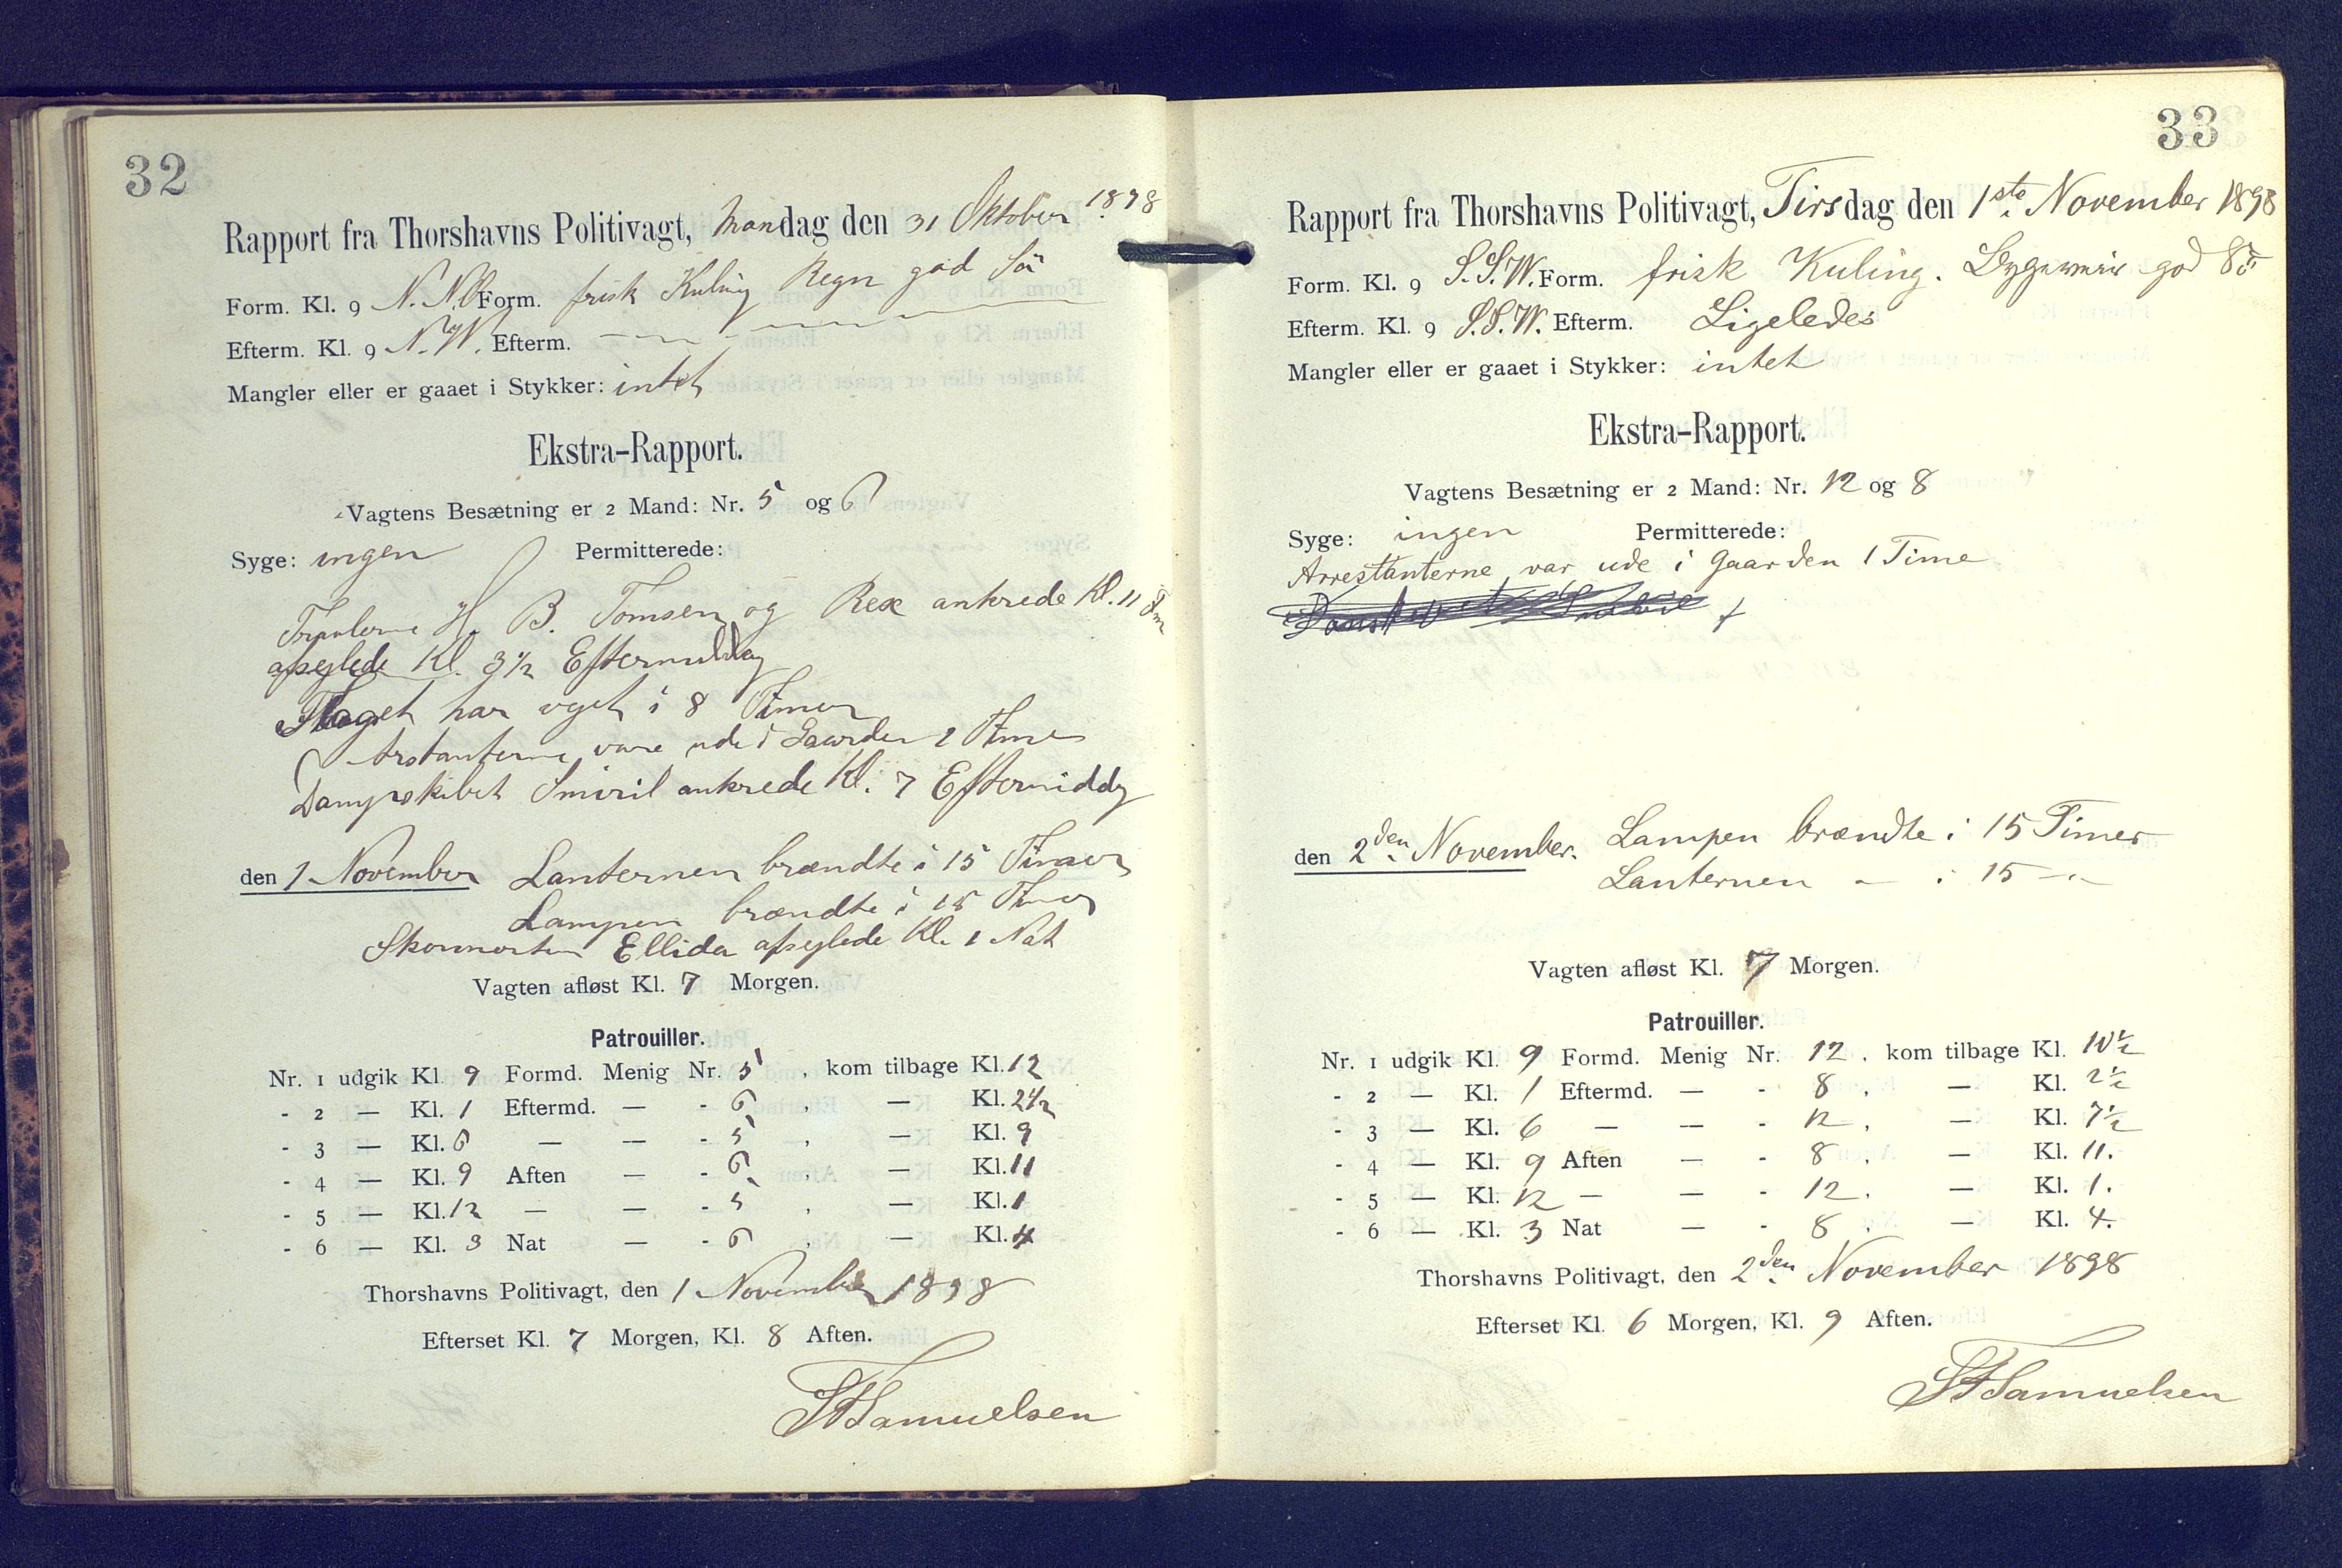 32
Rapport fra Thorshavns Politivagt, Mandag den 31 Oktober 1898
Form. Kl. 9 N.N.O Form. frisk Kuling Regn god Sö
Efterm. Kl. 9 N.W. Efterm. — " — " —
Mangler eller er gaaet i Stykker: intet
Ekstra-Rapport.
Vagtens Besætning er 2 Mand: Nr. 5 og 6
Syge: ingen Permitterede:
Travlerne H. B. Tomsen og Rex ankrede Kl. 11 Fm
afseglede Kl. 3½ Eftermiddag
Flaget har vejet i 8 Timer
Arstanterne vare ude i Gaarden 2 Time
Dampskibet Smiril ankrede Kl. 7 Eftermiddg
den 1 November Lanternen brændte i 15 Timer
Lampen brændte i 15 Timer
Skonnorten Ellida afseglede Kl. 1 Nat
Vagten afløst Kl. 7 Morgen.
Patrouiller.
Nr. 1 udgik Kl. 9 Formd. Menig Nr. 5, kom tilbage Kl. 12
- 2 — Kl. 1 Eftermd. — - 6, — Kl. 2½
- 3 — Kl. 6 — — - 5, — Kl. 9
- 4 — Kl. 9 Aften — - 6, — Kl. 11
- 5 — Kl. 12 — — - 5, — Kl. 1
- 6 — Kl. 3 Nat — - 6, — Kl. 4
Thorshavns Politivagt, den 1 November 1898
Efterset Kl. 7 Morgen, Kl. 8 Aften.
Samuelsen
33
Rapport fra Thorshavns Politivagt, Tirsdag den 1ste November 1898
Form. Kl. 9 S.S.W. Form. frisk Kuling. Bygeveir god Sö
Efterm. Kl. 9 S.S.W. Efterm. Ligeledes
Mangler eller er gaaet i Stykker: intet
Ekstra-Rapport.
Vagtens Besætning er 2 Mand: Nr. 12 og 8
Syge: ingen Permitterede:
Arrestanterne var ude i Gaarden 1 Time
den 2den November. Lampen brændte i 15 Timer
Lanternen — i 15 —"—
Vagten afløst Kl. 7 Morgen.
Patrouiller.
Nr. 1 udgik Kl. 9 Formd. Menig Nr. 12, kom tilbage Kl. 10½
- 2 — Kl. 1 Eftermd. — - 8, — Kl. 2½
- 3 — Kl. 6 — — - 12, — Kl. 7½
- 4 — Kl. 9 Aften — - 8, — Kl. 11.
- 5 — Kl. 12 — — - 12, — Kl. 1.
- 6 — Kl. 3 Nat — - 8, — Kl. 4.
Thorshavns Politivagt, den 2den November 1898
Efterset Kl. 6 Morgen, Kl. 9 Aften.
Samuelsen